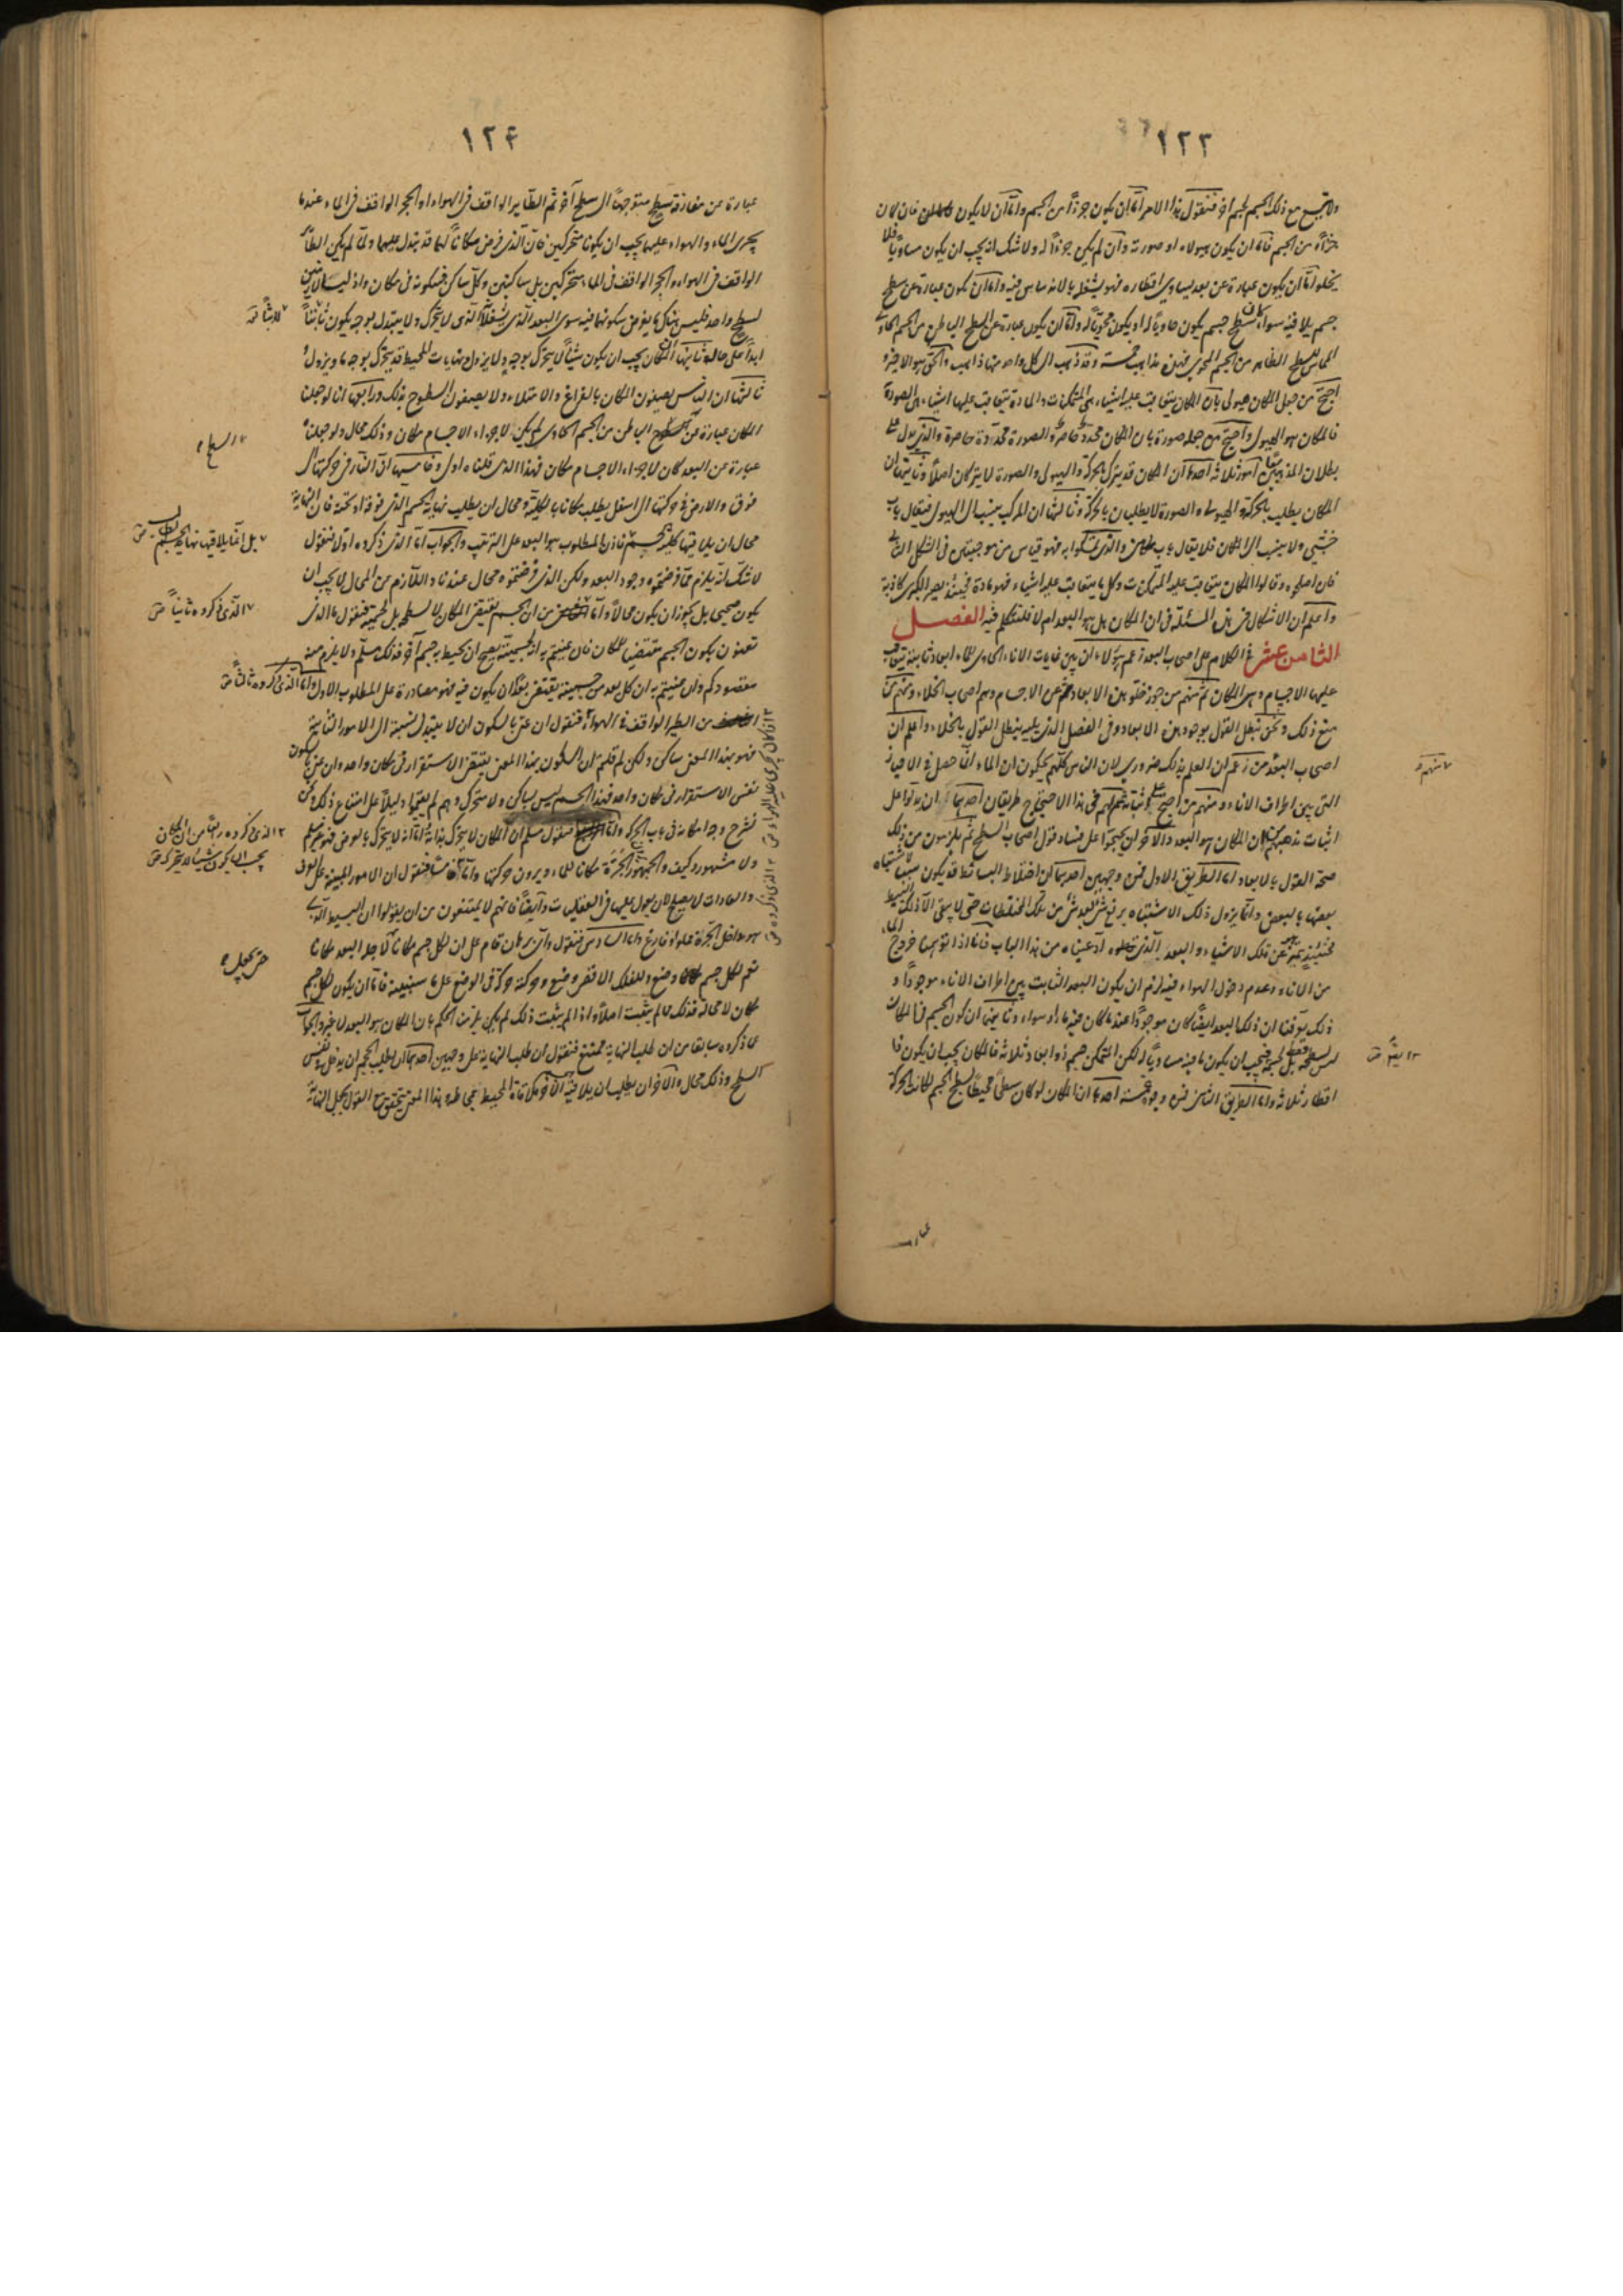 ١٢٣
ولا يجتمع مع ذلك الجسم لجسم آخر فنقول هذا الامر اما ان يكون جزءاً من الجسم واما ان لا يكون فان كان
جزءاً من الجسم فاما ان يكون هيولاه او صورته وان لم يكن جزءاً له ولا شك انه يجب ان يكون مساوياً فلا
يخلو اما ان يكون عبارة عن بعد يساوي اقطاره فهو يشغله بالاندساس فيه واما ان يكون عبارة عن سطح
جسم يلاقيه سواء كان سطح جسم يكون حاوياً له او يكون محوياً له واما ان يكون عبارة عن السطح الباطن من الجسم الحاوي
المماس للسطح الظاهر من الجسم المحوي فهذه مذاهب خمسة وقد ذهب الى كل واحد منها ذاهب والحق هو الاخير و
احتج من جعل المكان هيولى بان المكان يتعاقب عليه اشياء هي المتمكنات والمادة تتعاقب عليها اشياء هي الصورة
فالمكان هو الهيولى واحتج من جعله صورة بان المكان محدد حاصر والصورة محددة حاصرة والذي يدل على
بطلان المذهبين امور ثلاثة احدها ان المكان قد يترك بالحركة والهيولى والصورة لا يتركان اصلاً وثانيها ان
المكان يطلب بالحركة والهيولى والصورة لا يطلبان بالحركة وثالثها ان المركب ينسب الى الهيولى فيقال باب
خشبي ولا ينسب الى المكان فلا يقال باب والذي تمسكوا به فهو قياس من موجبتين في الشكل الثاني
فان اصلحوه وقالوا المكان يتعاقب عليه المتمكنات وكل ما يتعاقب عليه اشياء فهو مادة فحينئذ يصير الكبرى كاذبة
واعلم ان الاشكال في هذه المسئلة في ان المكان هل هو البعد ام لا فلنتكلم فيه الفصل
الثامن عشر في الكلام على اصحاب البعد زعم هؤلاء ان بين غايات الاناء الحاوي للماء ابعاد ثابتة يتعاقب
عليها الاجسام وهي المكان ثم منهم من جوز خلو هذه الابعاد عن الاجسام وهم اصحاب الخلاء ومنهم من
منع ذلك ونحن نبطل القول بوجود هذه الابعاد وفي الفصل الذي يليه نبطل القول بالخلاء واعلم ان
اصحاب البعد من زعم ان العلم بذلك ضروري لان الناس كلهم يحكمون ان الماء انما حصل في الاحياز
التي بين اطراف الاناء ومنهم من احتج على اثباته ثم لهم في هذا الاحتجاج طريقان احدهما ان يدلوا على
اثبات مذهبهم من ان المكان هو البعد والآخر ان يحتجوا على فساد قول اصحاب السطح ثم يلزمون من ذلك
صحة القول بالابعاد اما الطريق الاول فمن وجهين احدهما ان اختلاط البسائط قد يكون سبباً لاشتباه
بعضها بالبعض وانما يزول ذلك الاشتباه برفع شيء بعد شيء من تلك المختلطات حتى لا يبقى الا ذلك البسيط
فحينئذ يتميز عن تلك الاشياء والبعد الذي ادعيناه من هذا الباب فانا اذا توهمنا خروج الماء
من الاناء وعدم دخول الهواء فيه لزم ان يكون البعد الثابت بين اطراف الاناء موجوداً و
ذلك يوقفنا ان ذلك البعد ايضاً كان موجوداً عند ما كان فيه ماء او هواء وثانيهما ان كون الجسم في المكان
ليس لسطحه فقط بل لحجمه فيجب ان يكون ما فيه مساوياً له لكن المتمكن جسم ذو ابعاد ثلاثة فالمكان يجب ان يكون ذا
اقطار ثلاثة واما الطريق الثاني فمن وجوه خمسة احدها ان المكان لو كان سطحاً محيطاً بسطح الجسم لكانت الحركة
عبارة
١٢٤
عبارة عن مفارقة سطح متوجهاً الى سطح آخر ثم الطاير الواقف في الهواء او الحجر الواقف في الماء عند ما
يجري الماء والهواء عليهما يجب ان يكونا متحركين فان الذي فرض مكاناً لهما قد يتبدل عليهما ولما لم يكن الطائر
الواقف في الهواء والحجر الواقف في الماء متحركين بل ساكنين وكل ساكن فسكونه في مكان واذ ليسا لابثين
لسطح واحد فليس هناك ما يفرض سكونهما فيه سوى البعد الذي يشغلانه الذي لا يتحرك ولا يتبدل بوجه يكون ثابتاً
ابداً على حالة ثانيها ان المكان يجب ان يكون شيئاً لا يتحرك بوجه ولا يزول ونهايات المحيط قد يتحرك بوجه ما ويزول و
ثالثها ان الناس يصفون المكان بالفراغ والامتلاء ولا يصفون السطوح بذلك ورابعها انا لو جعلنا
المكان عبارة عن السطح الباطن من الجسم الحاوي لم يكن لاجزاء الاجسام مكان وذلك محال ولو جعلناه
عبارة عن البعد كان لاجزاء الاجسام مكان فهذا الذي قلناه اولى وخامسها ان النار في حركتها الى
فوق والارض في حركتها الى اسفل يطلب مكانا بالكلية ومحال ان يطلب نهاية الجسم الذي فوقه او تحته فان النهاية
محال ان يلاقيها كلية جسم فاذن المطلوب هو البعد على الترتيب والجواب اما الذي ذكروه اولاً فنقول
لا شك انه يلزم مما فرضتموه وجود البعد ولكن الذي فرضتموه محال عندنا واللازم من المحال لا يجب ان
يكون صحيحاً بل يجوز ان يكون محالاً واما من ان الجسم يقتضي المكان لا لسطحه بل لجسميته فنقول ما الذي
تعنون بكون الجسم مقتضيا للمكان فان عنيتم به انه لجسميته يصح ان يحيط به جسم آخر فذلك مسلم ولا يلزم منه
مقصودكم وان عنيتم به ان كل بعد من جسميته يقتضي بعداً ان يكون فيه فهو مصادرة على المطلوب الاول واما الذي ذكروه ثالثاً
من الطير الواقف في الهواء فنقول ان عني بالسكون ان لا يتبدل نسبته الى الامور الثابتة
فهو بهذا المعنى ساكن ولكن لم قلتم ان السكون بهذا المعنى يقتضي الاستقرار في مكان واحد وان عني بالسكون
نفس الاستقرار في مكان واحد فهذا الجسم ليس بساكن ولا متحرك وهم لم يقيموا دليلاً على امتناع ذلك ونحن
نشرح وجه امكانه في باب الحركة واما فنقول مسلم ان المكان لا يتحرك بذاته اما انه لا يتحرك بالعرض فهو غير مسلم
ولا مشهور وكيف والجمهور يجعلون الجرة مكانا للماء ويرون حركتها واما فنقول ان الامور المبنية على العرف
والعادات لا يصلح لان يعول عليها في العقليات وايضاً فانهم لا يمتنعون من ان يقولوا ان البسيط الذي
هو داخل الجرة مملو او فارغ واما السادس فنقول واي برهان قام على ان لكل جسم مكانا لاجله البعد مكانا
نعم لكل جسم وضع وللفلك الاقصى وضع وحركته حركة في الوضع على ما سنبينه فاما ان يكون لكل جسم
مكان لا محالة فذلك مما لم يثبت اصلاً واذا لم يثبت ذلك لم يكن يلزمنا الحكم بان المكان هو البعد لا غير والجواب
عما ذكروه سابقا من ان طلب النهاية ممتنع فنقول ان طلب النهاية على وجهين احدهما ان يطلب الجسم ان يدخل في نفس
السطح وذلك محال والآخر ان يطلب ان يلاقيه ملاقاة المحيط بمحاطه وهذا المعنى يتحقق مع القول بجعل النهاية
السطح
بل انما يلاقيها نهاية الجسم
الذي ذكروه ثانياً
الذي ذكروه من ان المكان
يجب ان يكون شيئا لا يتحرك
حتى يجعل
منهم